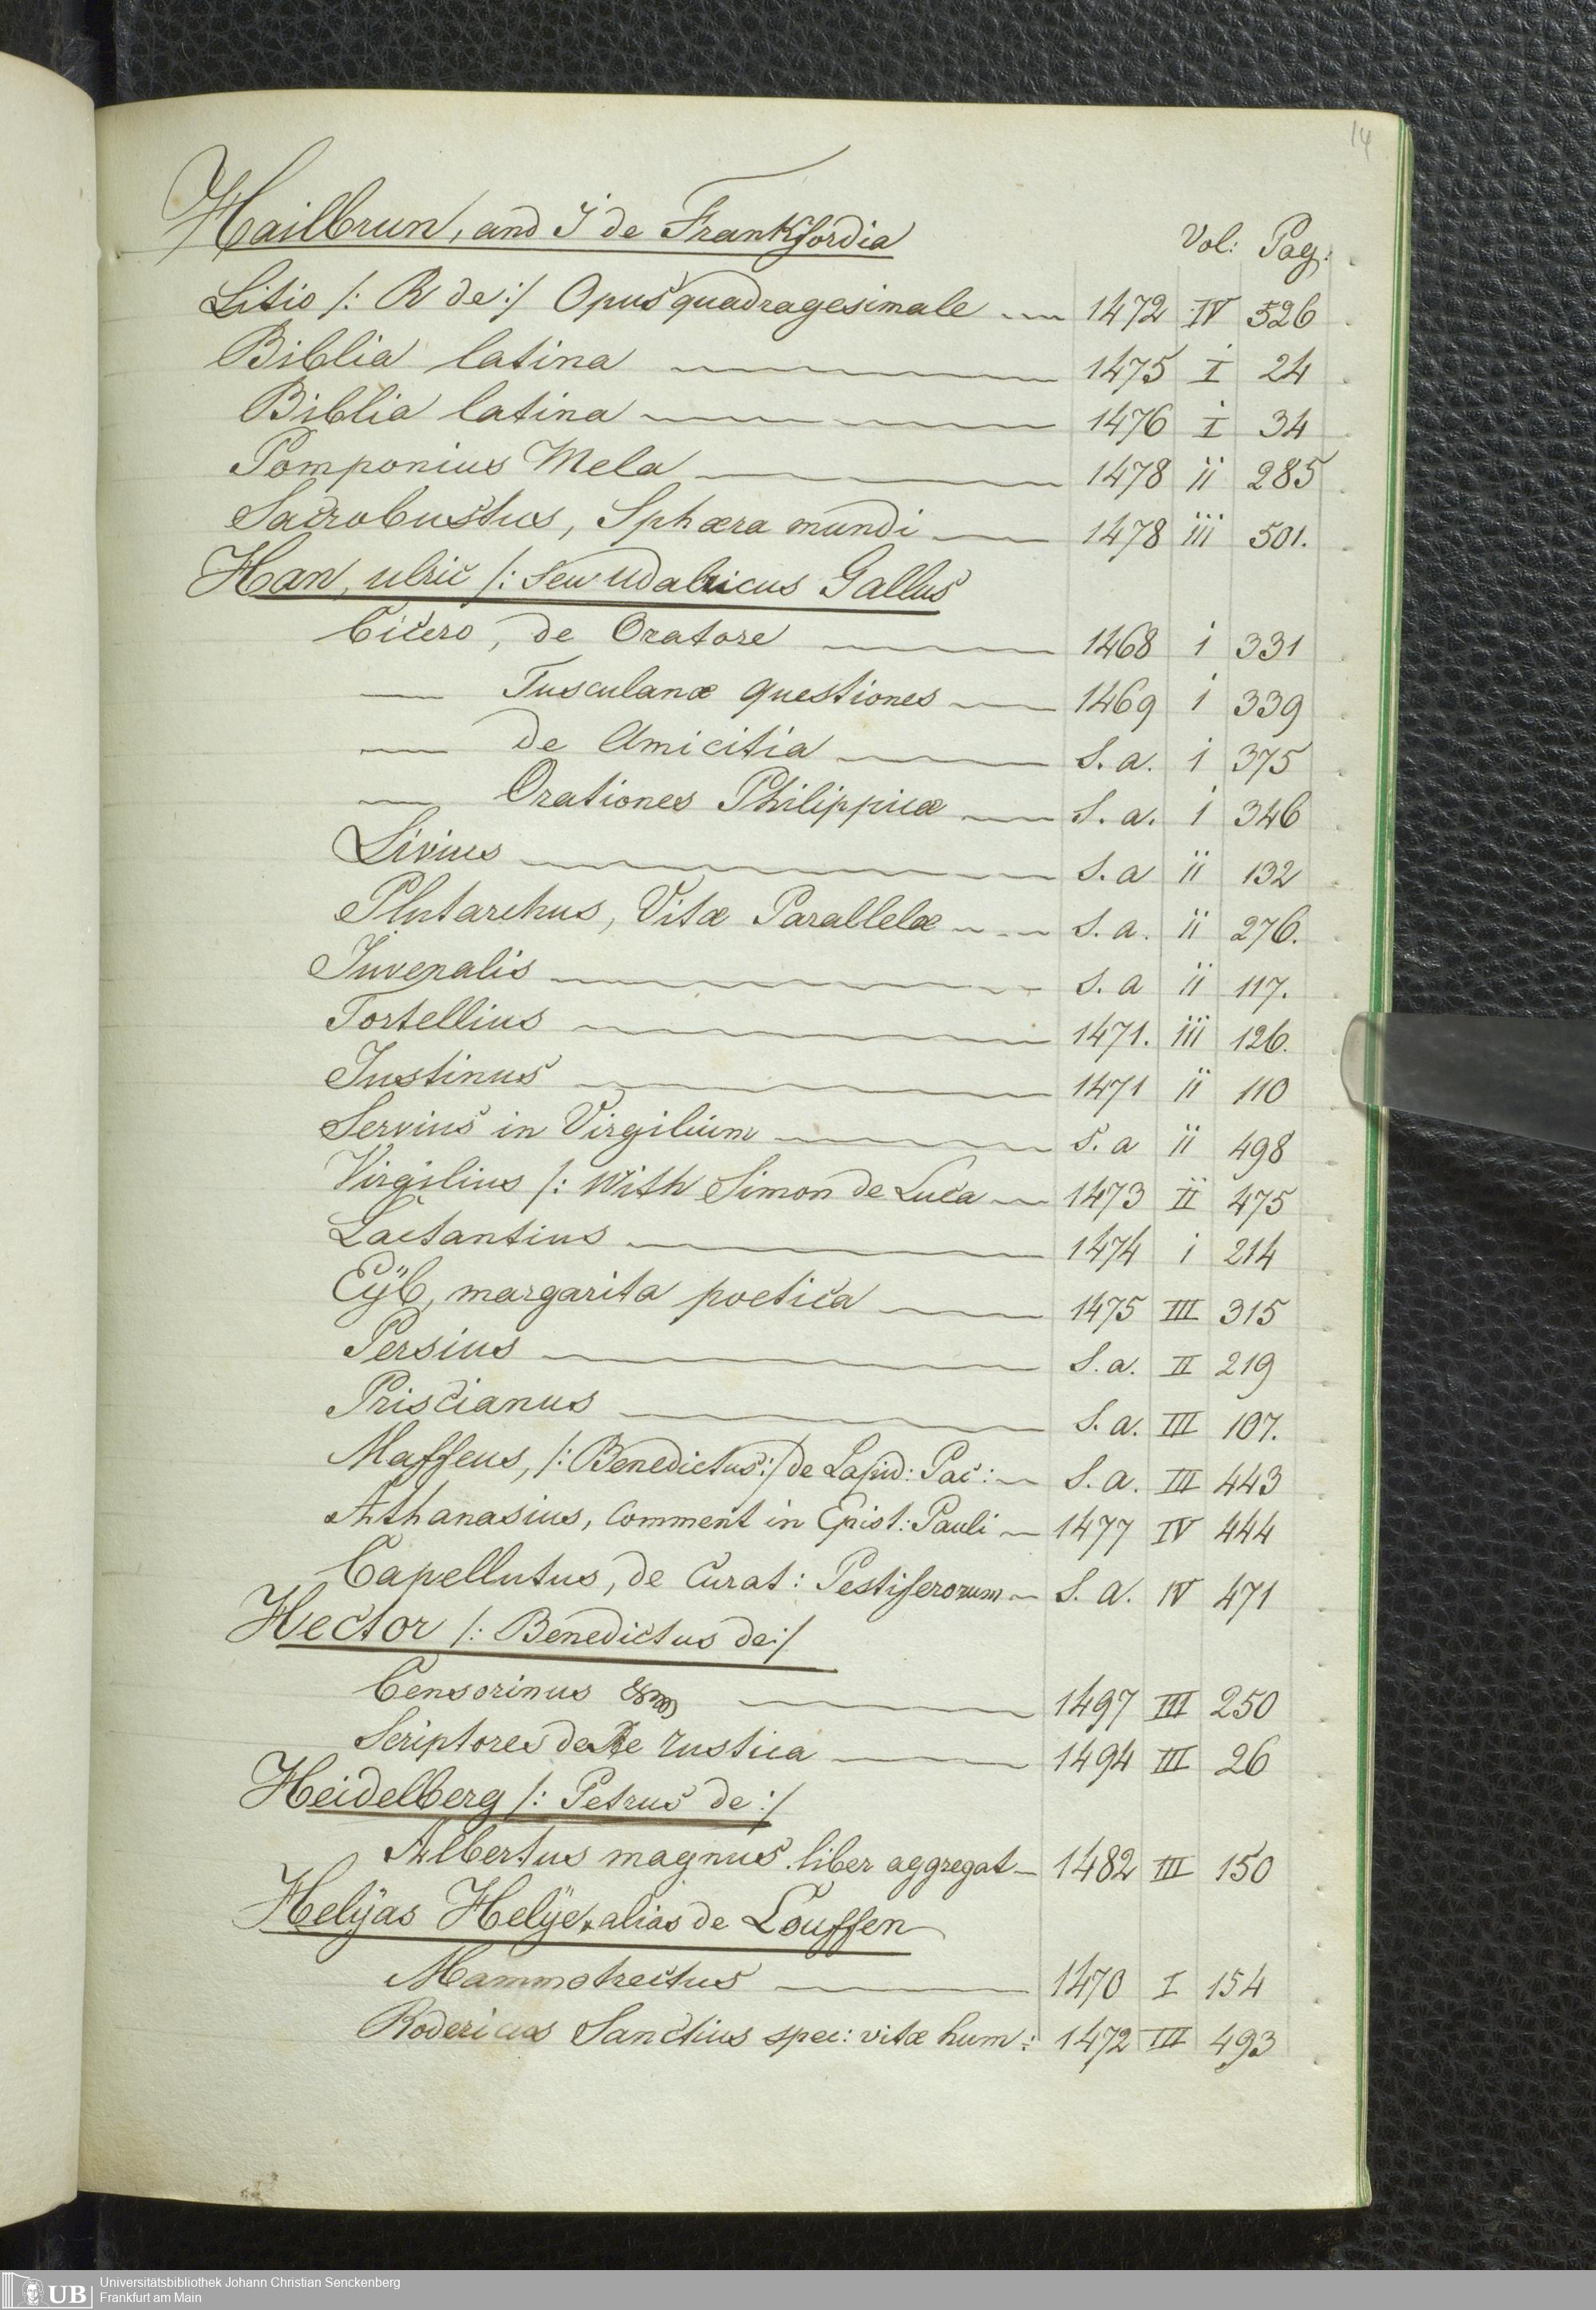 14
Hailbrun, and J de Frankfordia
Vol: Pag:
Litio /: R de :/ Opus quadragesimale 1472 IV 526
Biblia latina 1475 I 24
Biblia latina 1476 I 34
Pomponius Mela 1478 ii 285
Sacrobustus, Sphæra mundi 1478 iii 501.
Han, ulric /: seu Udalricus Gallus
Cicero, de Oratore 1468 i 331
— Tusculanæ questiones 1469 i 339
— de Amicitia S. a. i 375
— Orationes Philippicæ S. a. i 346
Livius S. a ii 132
Plutarchus, Vitæ Parallelæ S. a. ii 276.
Juvenalis S. a ii 117.
Tortellius 1471. iii 126.
Justinus 1471 ii 110
Servius in Virgilium S. a ii 498
Virgilius /: With Simon de Luca 1473 II 475
Lactantius 1474 i 214
Eÿb, margarita poetica 1475 III 315
Persius S. a. II 219
Priscianus S. a. III 107.
Maffeus, /: Benedictus :/ de Lapid: Pac: S. a. III 443
Athanasius, Comment in Epist: Pauli 1477 IV 444
Capellutus, de Curat: Pestiferorum S. a. IV 471
Hector /: Benedictus de :/
Censorinus 1497 III 250
Scriptores de Re rustica 1494 III 26
Heidelberg /: Petrus de :/
Albertus magnus liber aggregat 1482 III 150
Helÿas Helÿe, alias de Louffen
Mammotrectus 1470 I 154
Rodericus Sanctius spec: vitæ hum: 1472 III 493
UB Universitätsbibliothek Johann Christian Senckenberg
Frankfurt am Main